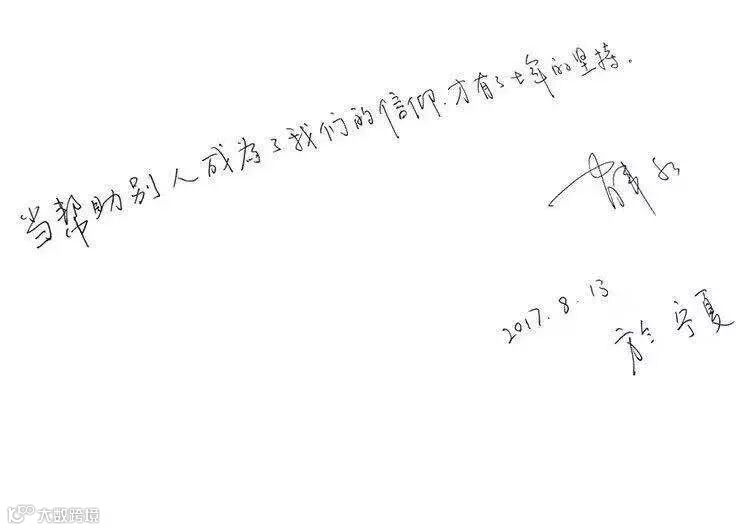 当帮助别人成为了我们的信仰，才有了年的坚持。
2017.8.13
於宁夏
大数跨境